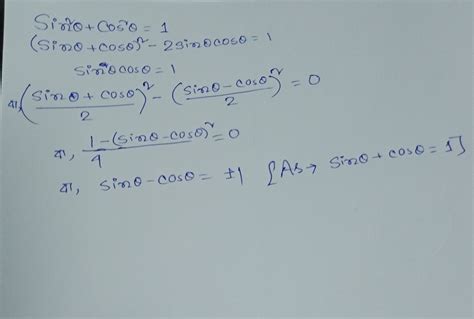 Sin²θ + Cos²θ = 1
(Sinθ + cosθ)² - 2sinθcosθ = 1
sinθcosθ = 1
বা, ((Sinθ + cosθ)/2)² - ((Sinθ - cosθ)/2)² = 0
বা, (1 - (Sinθ - cosθ)²)/4 = 0
বা, sinθ - cosθ = ±1 [As → sinθ + cosθ = 1]